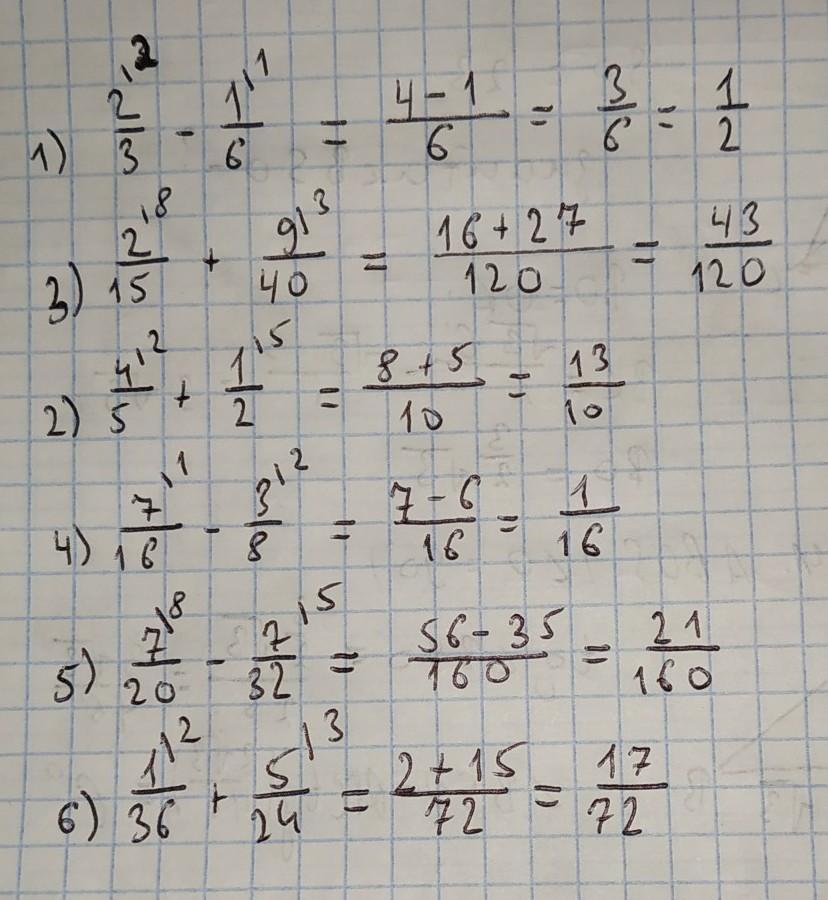 1) 2/3 '2 - 1/6 '1 = (4-1)/6 = 3/6 = 1/2
3) 2/15 '8 + 9/40 '3 = (16+27)/120 = 43/120
2) 4/5 '2 + 1/2 '5 = (8+5)/10 = 13/10
4) 7/16 '1 - 3/8 '2 = (7-6)/16 = 1/16
5) 7/20 '8 - 7/32 '5 = (56-35)/160 = 21/160
6) 1/36 '2 + 5/24 '3 = (2+15)/72 = 17/72